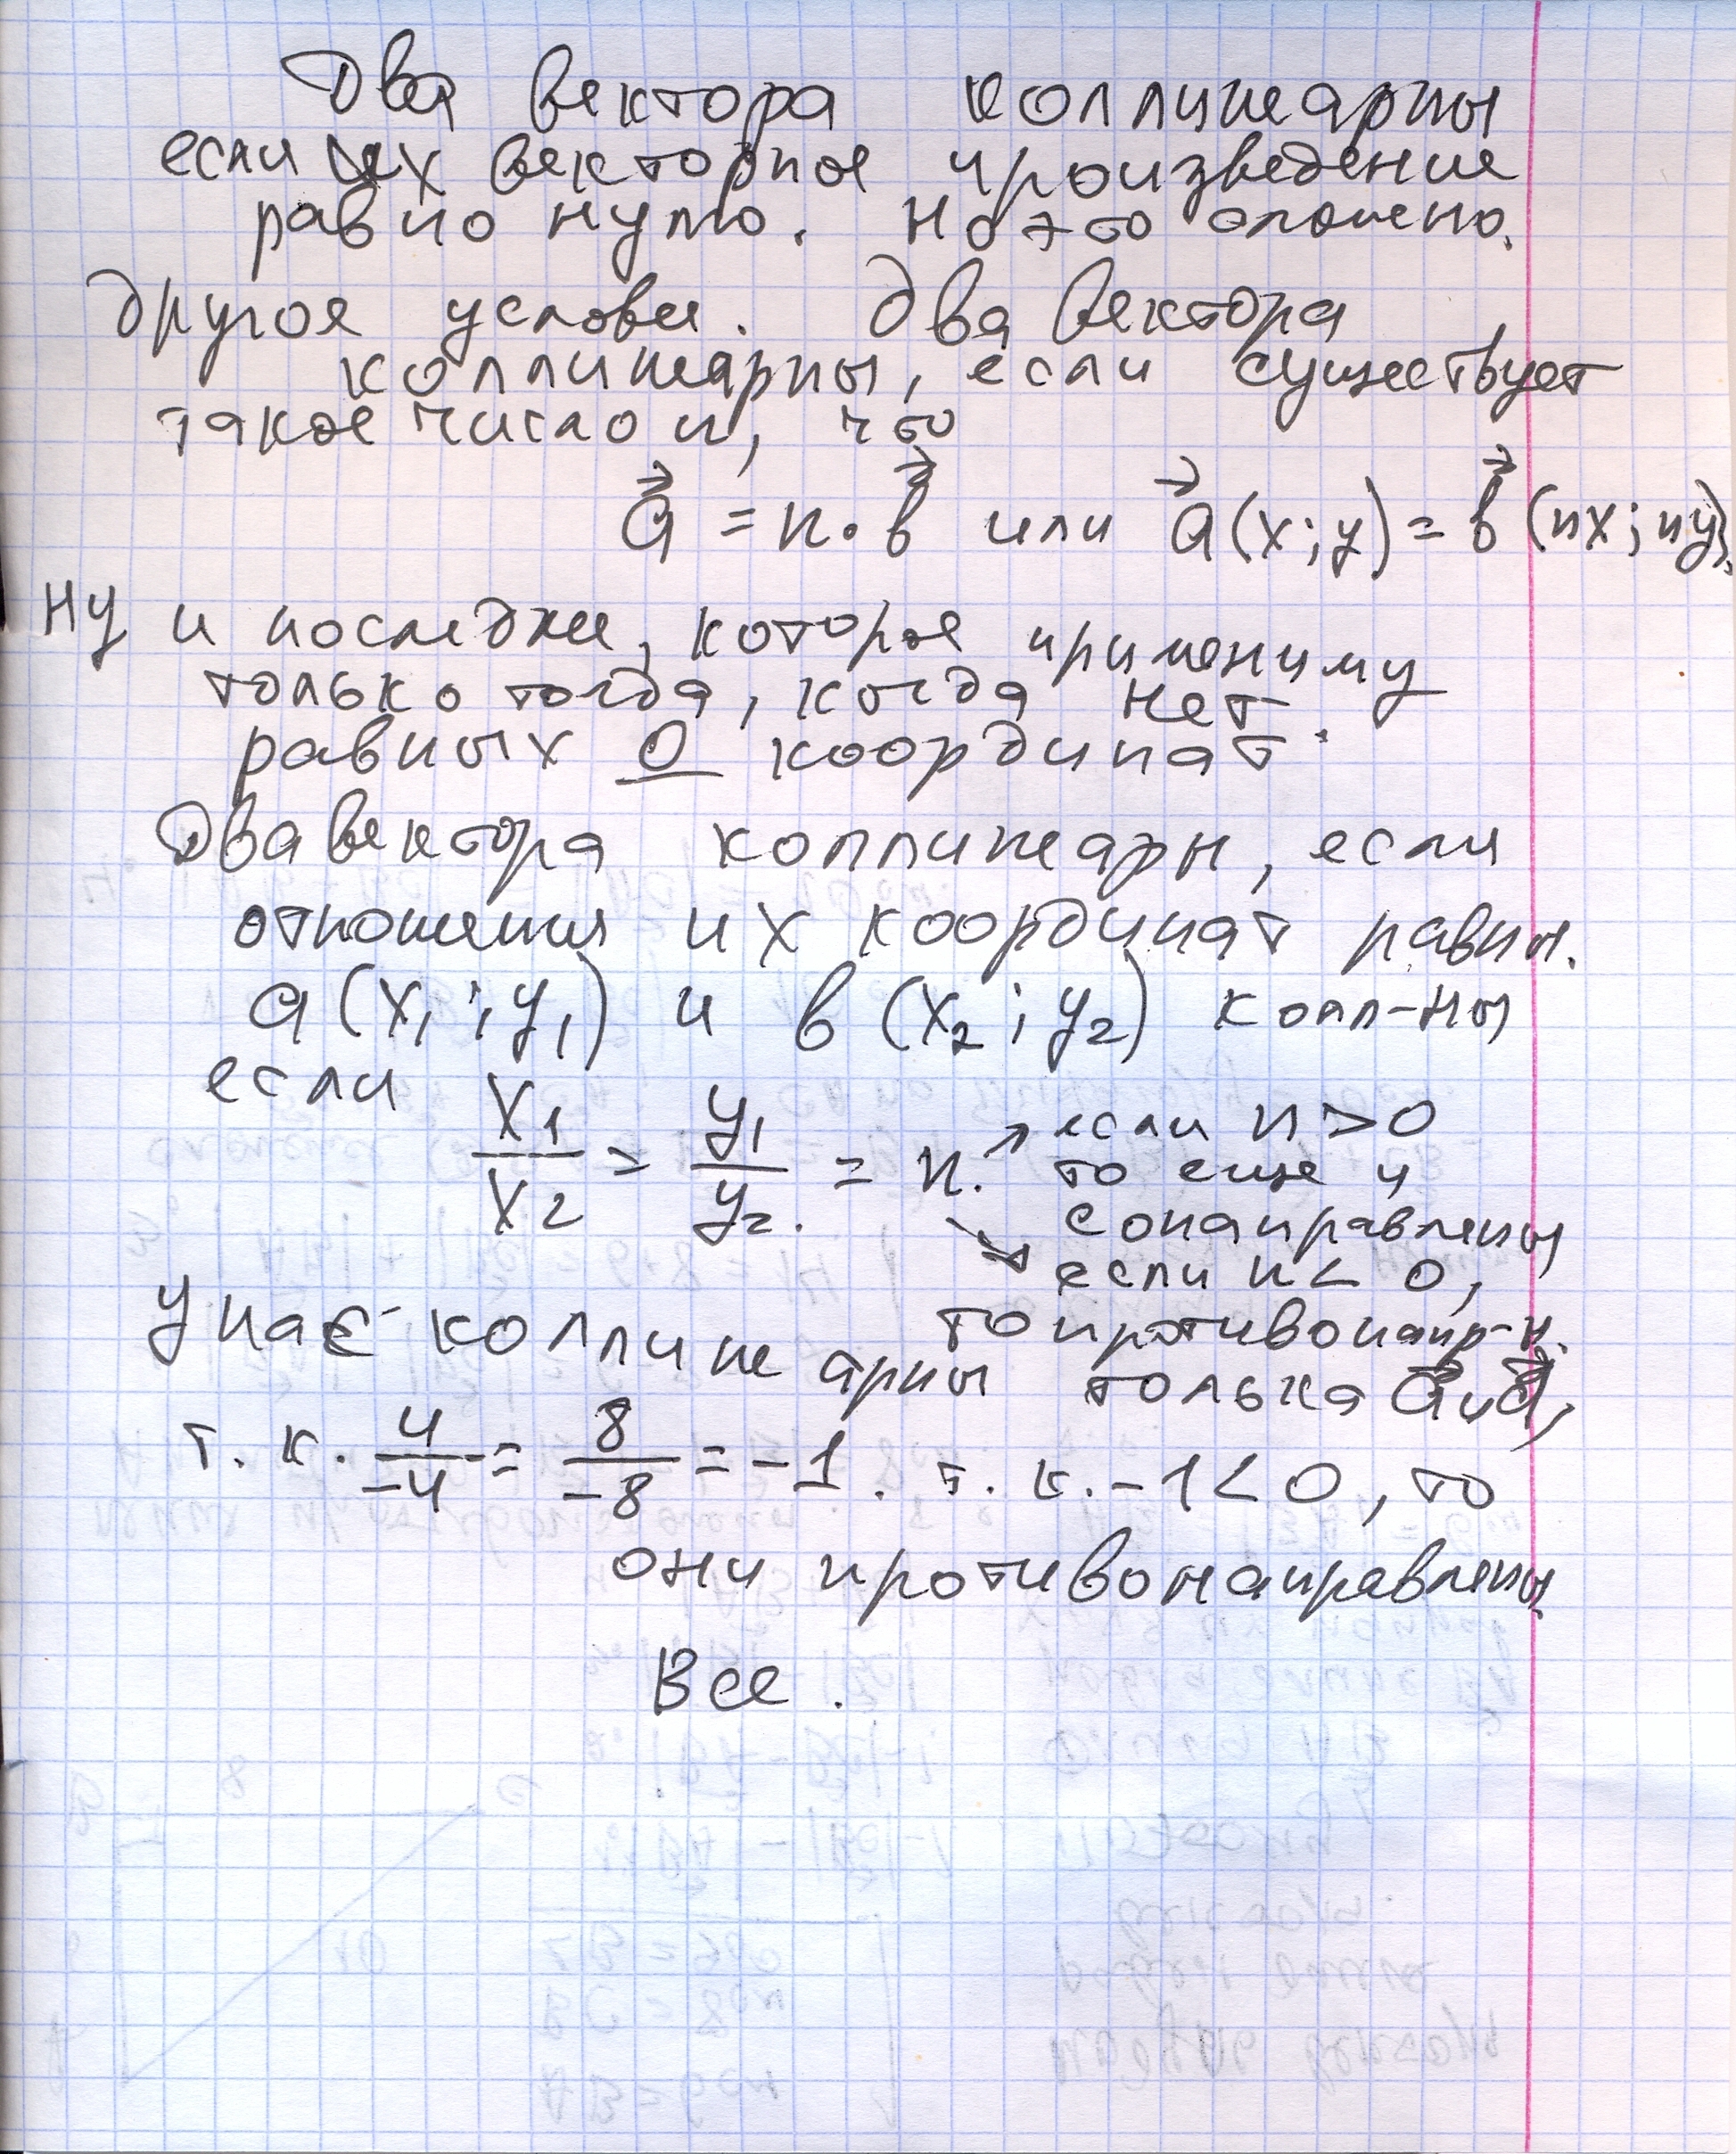 Два вектора коллинеарны
если их векторное произведение
равно нулю. Но это сложно.
Другое условие. Два вектора
коллинеарны, если существует
такое число n, что
a⃗ = n · b⃗ или a⃗ (x; y) = b⃗ (nx; ny).
Ну и последнее, которое применимо
только тогда, когда нет
равных 0 координат.
Два вектора коллинеарн, если
отношения их координат равны.
a (x₁; y₁) и b (x₂; y₂) колл-ны
если x₁/x₂ = y₁/y₂ = n.
если n > 0
то еще и
сонаправлены
если n < 0,
то противонапр-ы.
У нас коллинеарны только a⃗ и d⃗,
т. к. 4/-4 = 8/-8 = -1. т. к. -1 < 0, то
они противонаправлены.
Все.